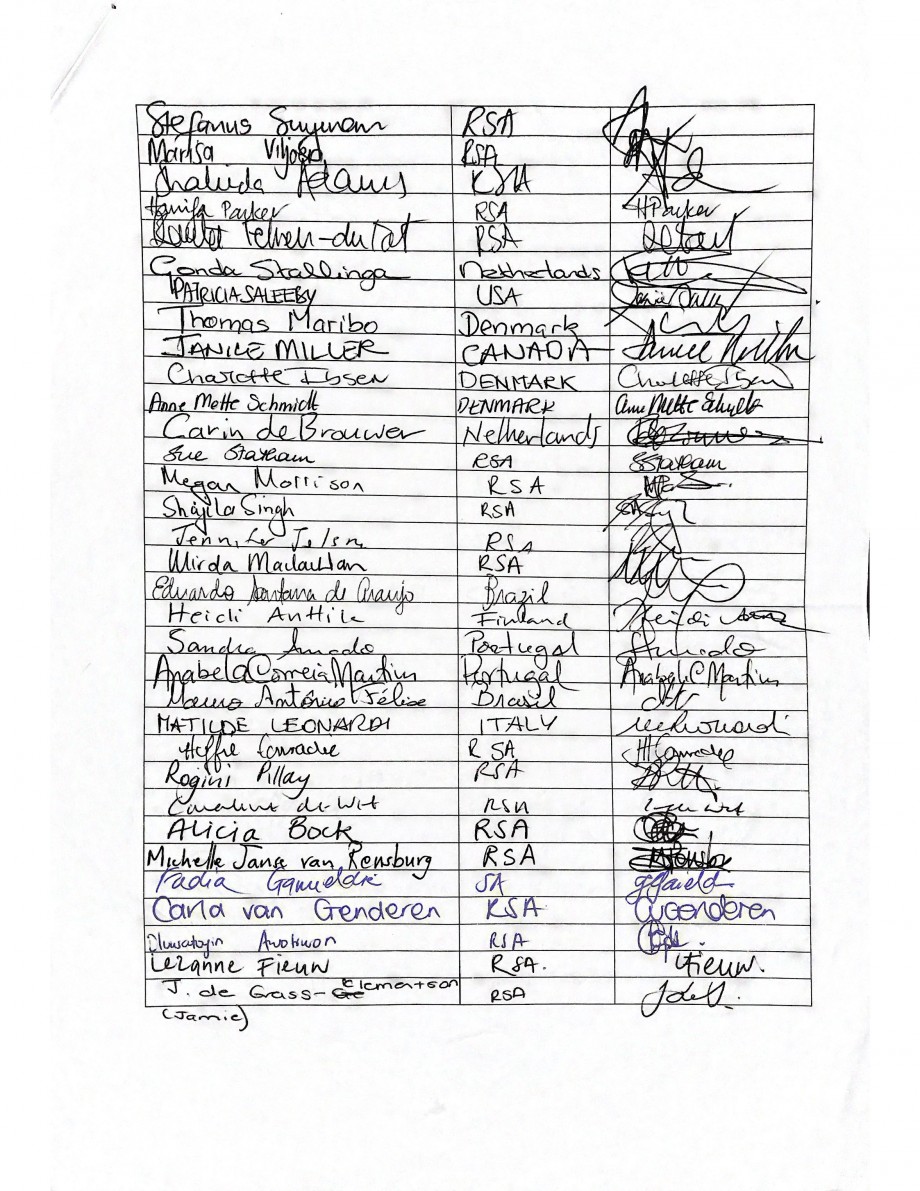 Stefanus Snyman RSA
Marisa Viljoen RSA
Shaheda Adams RSA
Hanifa Parker RSA HParker
-du Toit RSA
Gonda Stallinga Netherlands
PATRICIA SALEEBY USA
Thomas Maribo Denmark
JANICE MILLER CANADA Janice Miller
Charlotte Ibsen DENMARK Charlotte Ibsen
Anne Mette Schmidt DENMARK Anne Mette Schmidt
Carin de Brouwer Netherlands
Sue Statham RSA SStatham
Megan Morrison RSA
Shajila Singh RSA
Jennifer Jelsma RSA
Mirda Maclachlan RSA
Eduardo Santana de Araujo Brazil
Heidi Anttila Finland Heidi
Sandra Amado Portugal Amado
Anabela Correia Martins Portugal Anabela C Martins
António Félise Brasil
MATILDE LEONARDI ITALY
Conradie RSA HConradie
Rogini Pillay RSA
de Wit RSA
Alicia Bock RSA
Michelle Jana van Rensburg RSA
Fadia Gamieldie SA
Carla van Genderen RSA CvGenderen
Oluwatoyin Awotiwon RSA
Lezanne Fieuw RSA. LFieuw.
J. de Grass-Clementson RSA
(Jamie)